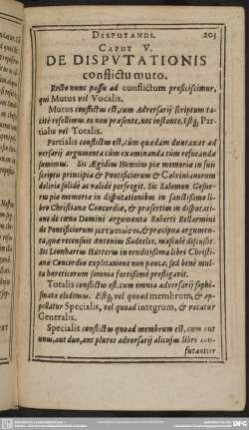 DISPUTANDI. 203
CAPUT V.
DE DISPVTATIONIS
conflictu muto.
Recto nunc passu ad conflictum proficiscimur,
qui Mutus vel Vocalis.
Mutus conflictus est, cum Adversarij scriptum ta-
citè refellimus eo non præsente, nec instante. Estq́; Par-
tialis vel Totalis.
Partialis conflictus est, cùm quædam duntaxat ad
versarij argumenta cùm examinanda tùm refutanda
sumimus. Sic Ægidius Hunnius piæ memoriæ in suis
scriptis principia & Pontificiorum & Calvinianorum
deliria solidè ac validè perfregit. Sic Salomon Gesne-
rus piæ memoriæ in disputationibus in sanctissimo li-
bro Christianæ Concordiæ, & præsertim in disputati-
one de cœna Domini argumenta Roberti Bellarmini
de Pontificiorum & præcipua argumen-
ta, quæ recensuit Antonius Sadeelec, masculè discussit.
Sic Leonhartus Hutterus in eruditissima libri Christi-
anæ Concordiæ explicatione non pauca, sed benè mul-
ta hæreticorum fortissimè profligavit.
Totalis conflictus est, cum omnia adversarij sophi-
smata eludimus. Estq́; vel quoad membrum, & ap-
pellatur Specialis, vel quoad integrum, & vocatur
Generalis.
Specialis conflictus quoad membrum est, cum aut
unus, aut duo, aut plures adversarij alicujus libri
futantur